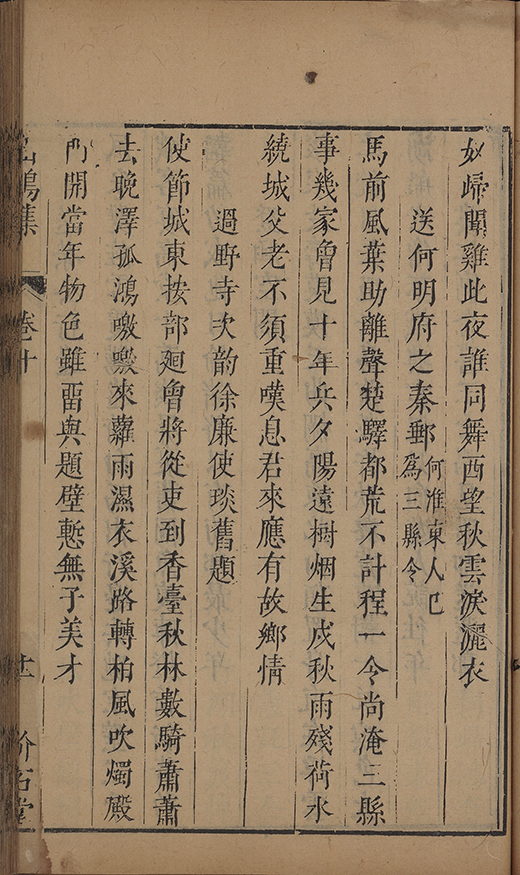 如歸聞雞此夜誰同舞西望秋雲淚灑衣
送何明府之秦郵何淮東人已爲三縣令
馬前風葉助離聲楚驛都荒不計程一令尚淹三縣
事幾家曾見十年兵夕陽遠樹烟生戍秋雨殘荷水
繞城父老不須重嘆息君來應有故鄉情
過野寺次韵徐廉使琰舊題
使節城東按部廻曾將從吏到香臺秋林數騎蕭蕭
去晚澤孤鴻嗷嗷來蘿雨濕衣溪路轉柏風吹燭殿
門開當年物色雖畱與題壁慙無子美才
鳴集
卷十
十一
介石堂